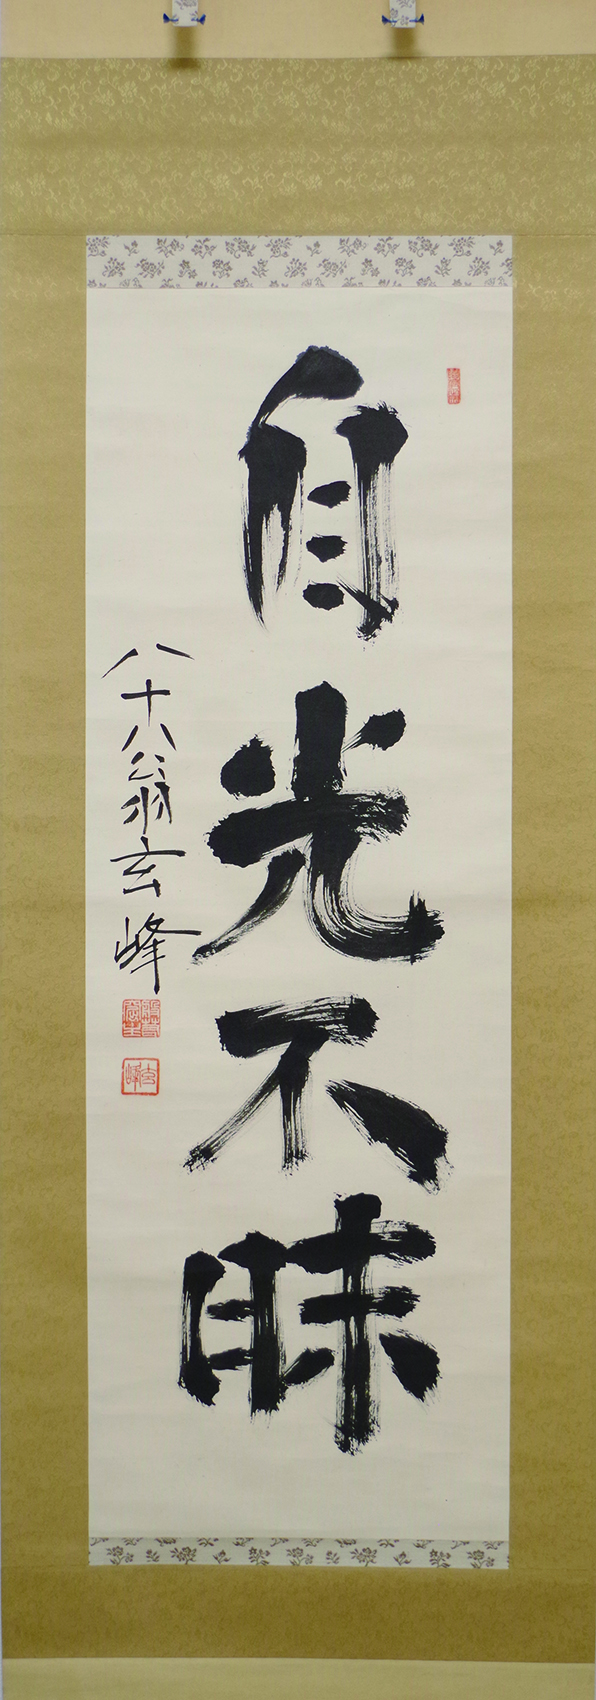 自光不昧
八十八翁玄峰